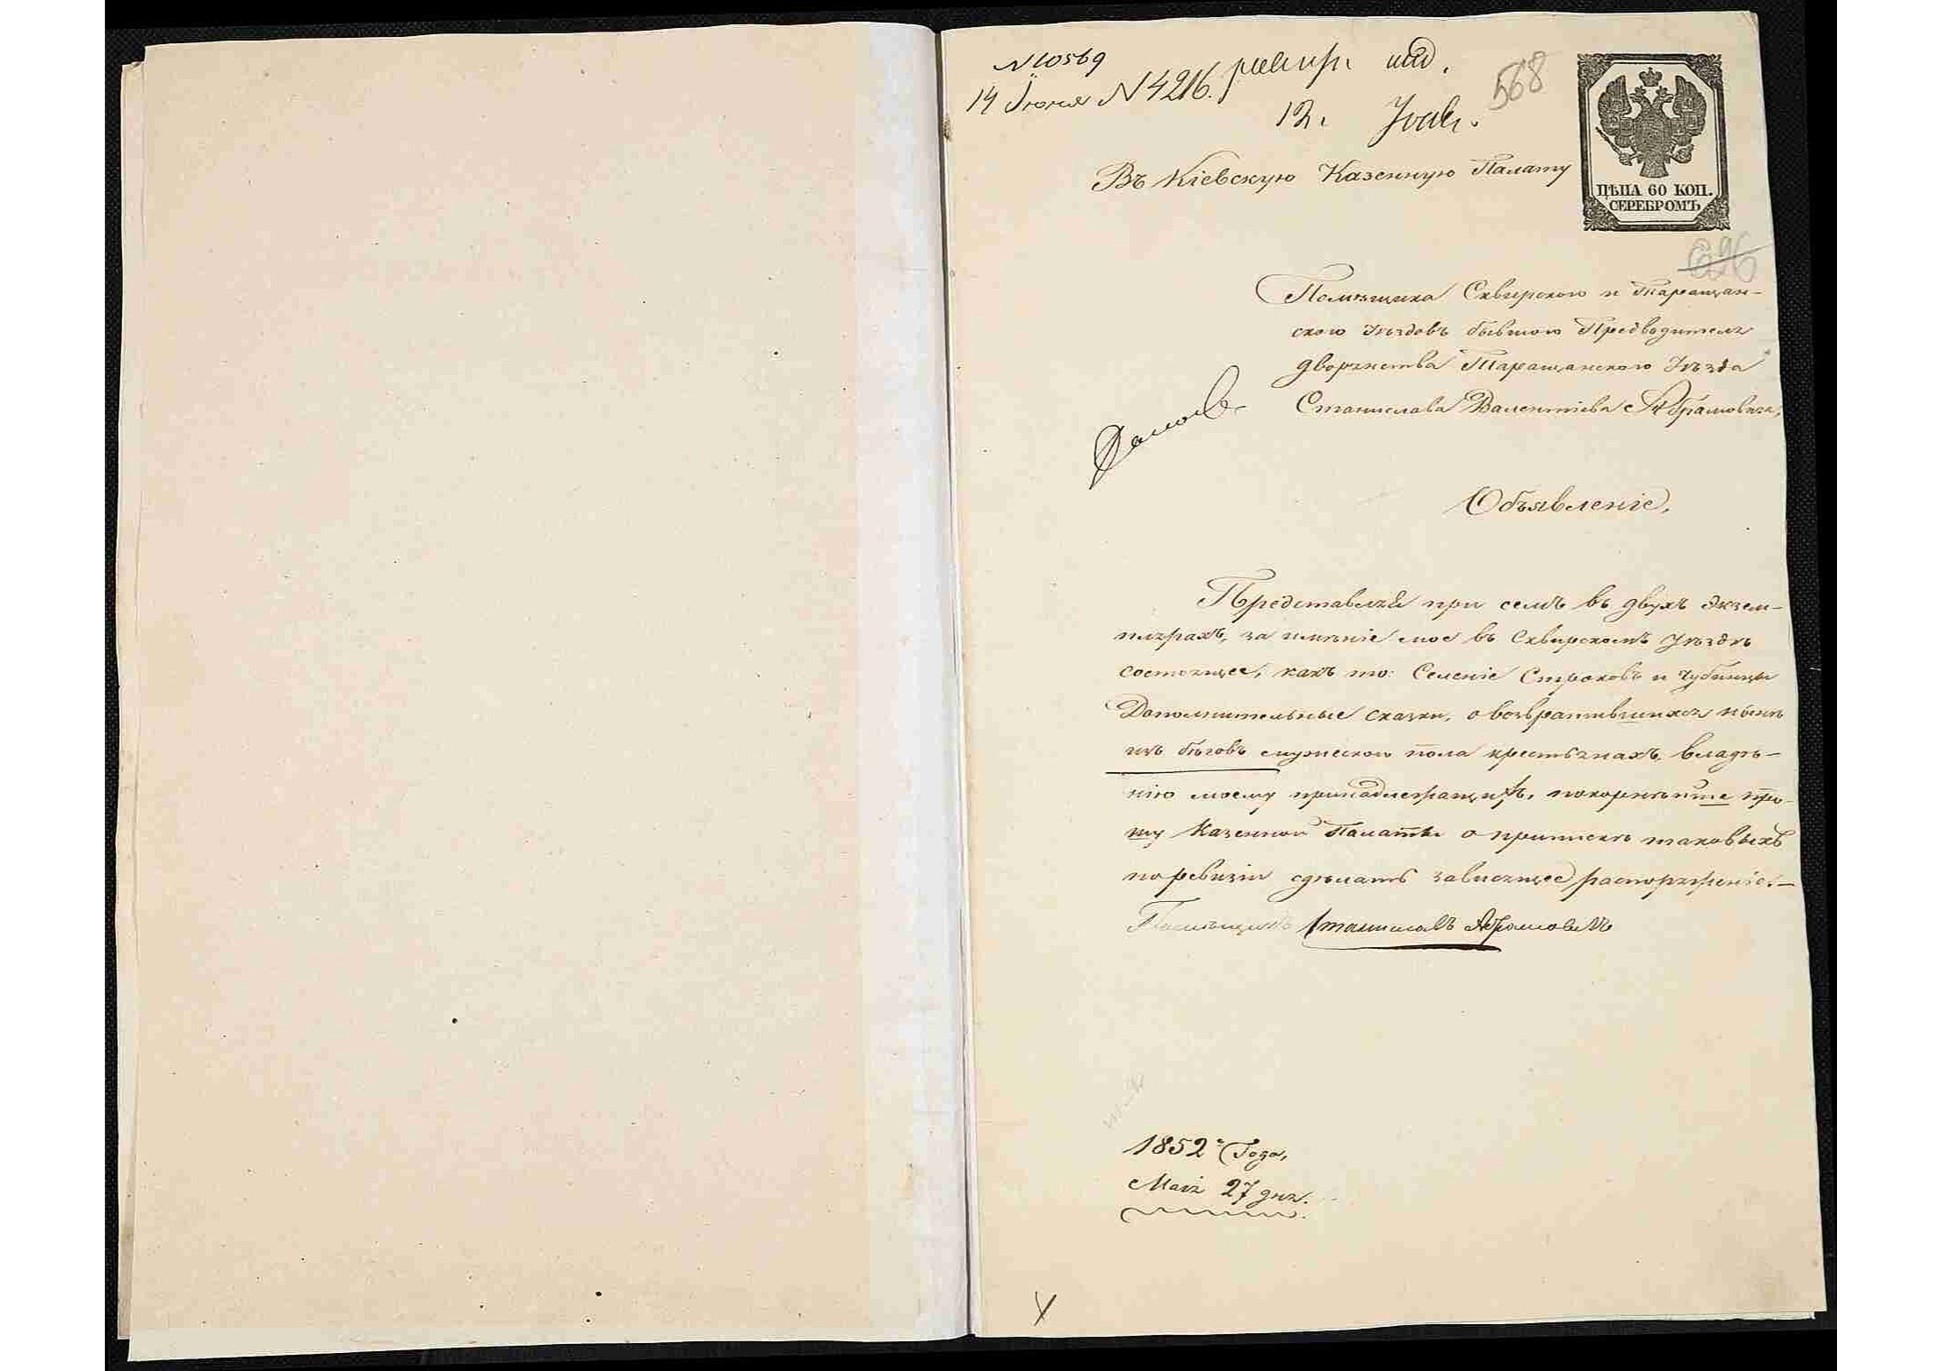 N 10569
14 Іюня N 4216.
12.
568
ЦѢНА 60 КОП.
СЕРЕБРОМЪ
Въ Кіевскую Казенную Палату
Помѣщика Сквирского и Таращан-
ского Уѣздовъ бывшого Предводителя
дворянства Таращанского Уѣзда
Станислава Валентіева Абрамовича,
Объявленіе,
Представляя при семъ въ двухъ Экзем-
плярахъ, за имѣніе мое въ Сквирскомъ Уѣздѣ
состоящее, какъ то: Селеніе Строковъ и Чубинцы
Дополнительные сказки, о возвратившихся нынѣ
изъ бѣговъ мужеского пола крестьянахъ владѣ-
нію моему принадлежащихъ, покорнѣйше про-
шу Казенной Палаты о припискѣ таковыхъ
по ревизіи сдѣлать зависящее распоряженіе.-
Помѣщикъ Станиславъ Абрамовичъ
1852 Года,
Маія 27 дня.